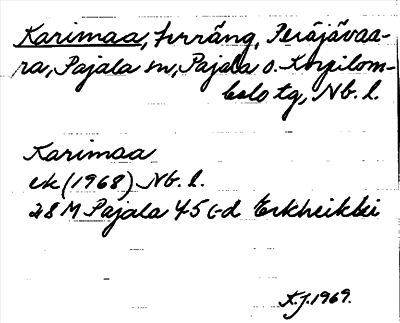 Karimaa, terräng, Peräjävaa-
ra, Pajala sn, Pajala o. Korpilom-
bolo tg, Nb. l.
Karimaa
ek (1968) Nb. l.
28 M Pajala 45 c-d Erkheikki
K.J. 1969.